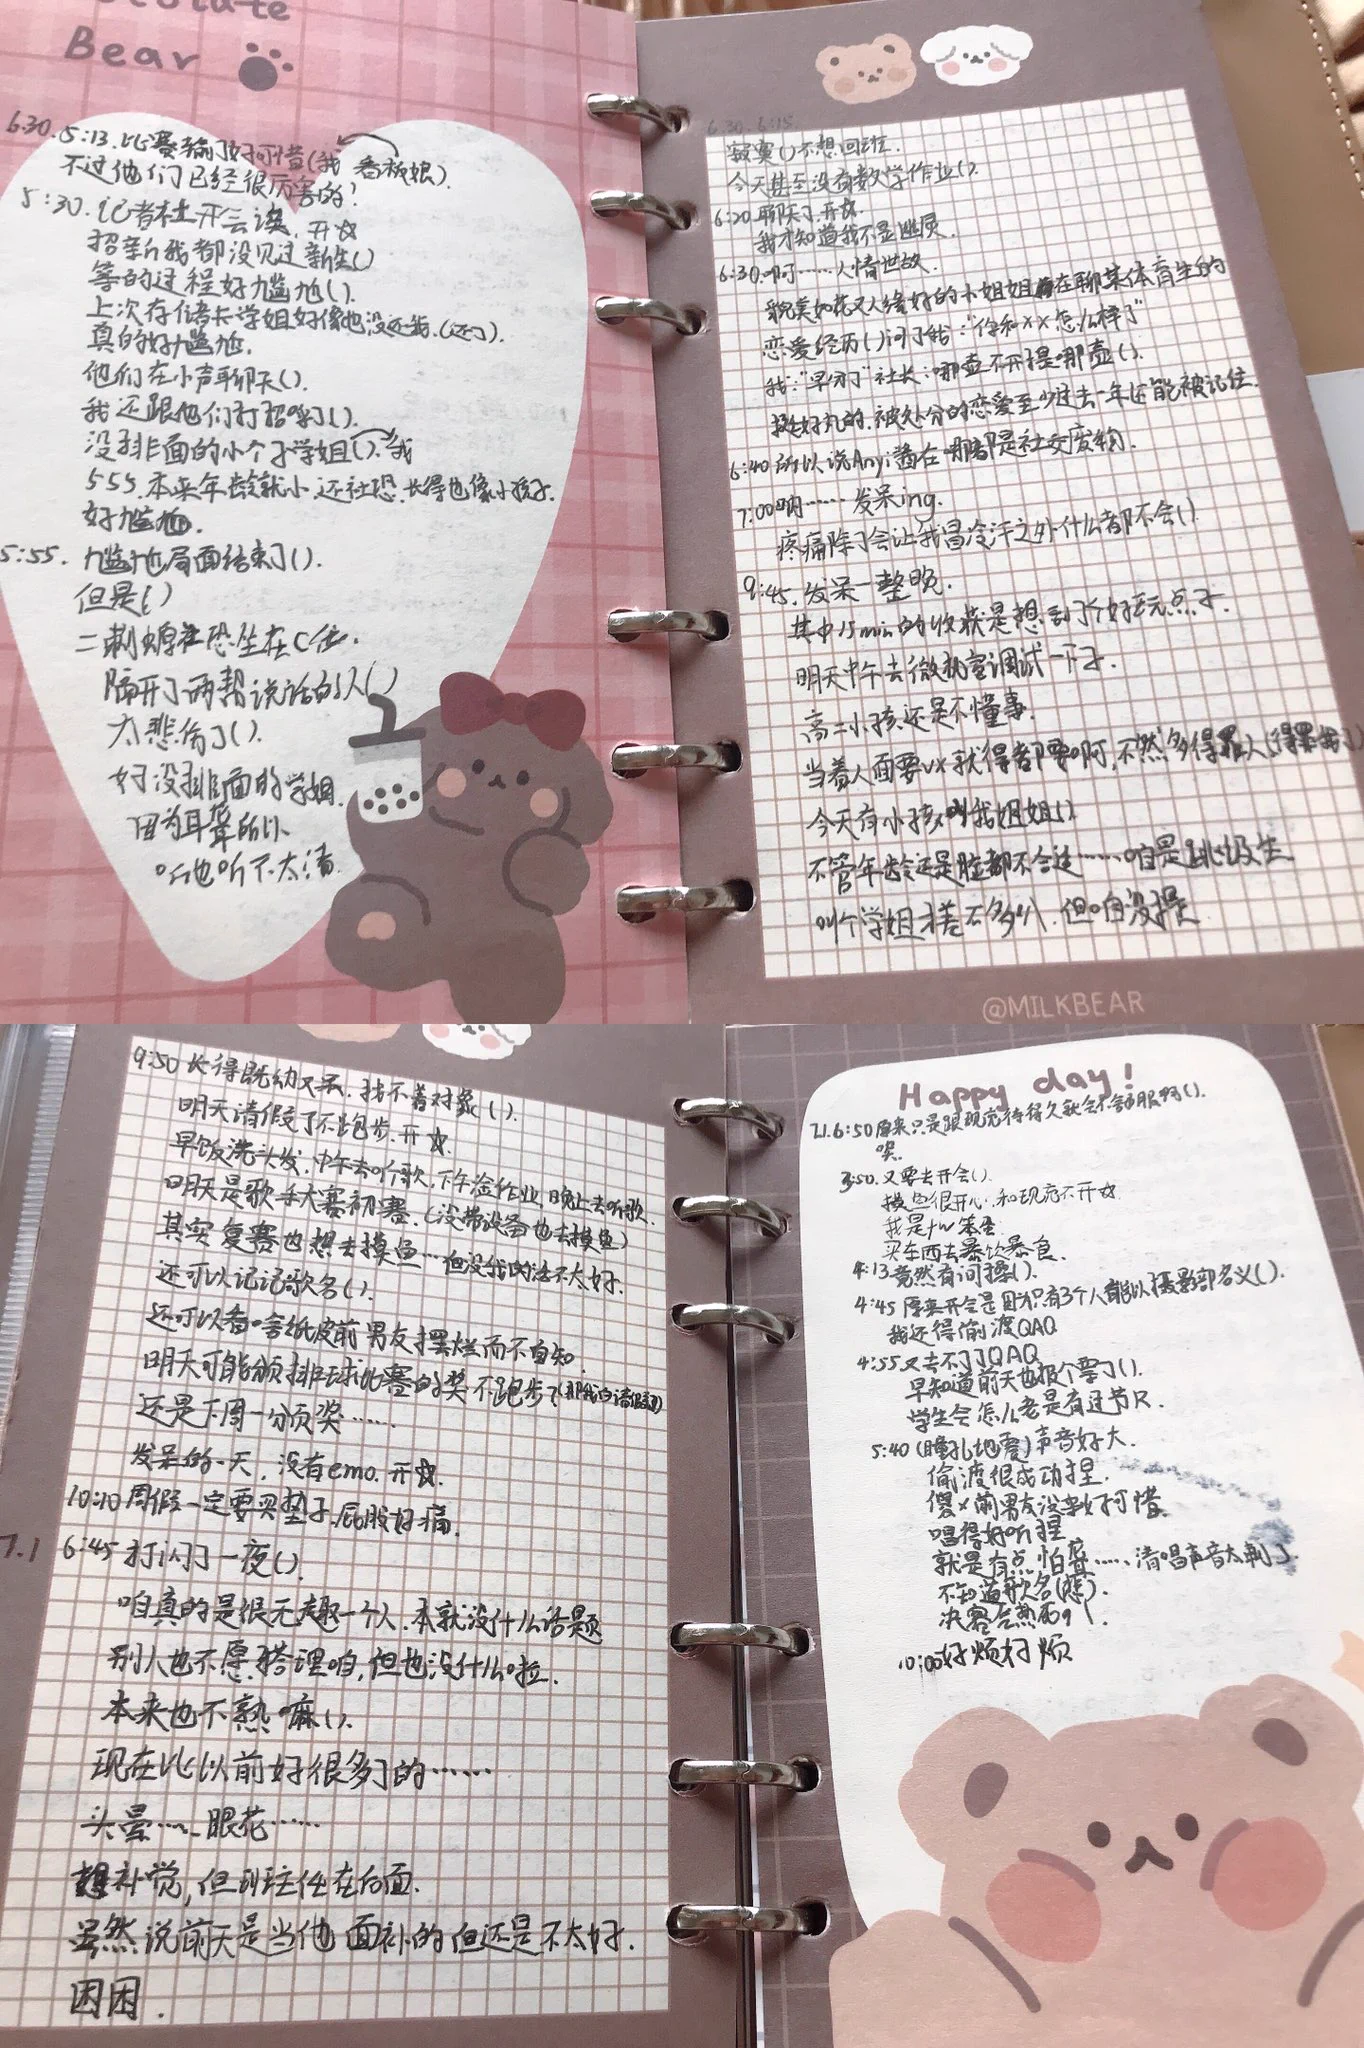 Bear
6.30. 5:13. 比赛输了好可惜(我 看板娘).
不过他们已经很厉害的!
5:30. 记者社开会诶. 开☆
招新我都没见过新生()
等的过程好尴尬().
上次存储卡学姐好像也没还我.(还了).
真的好尴尬.
他们在小声聊天().
我还跟他们打招呼了().
没排面的小个子学姐()我
555.本来年龄就小.还社恐.长得也像小孩子.
好尴尬.
5:55. 尴尬局面结束了().
但是()
二刺螈社恐生在C位.
隔开了两帮说话的人()
太悲伤了().
好没排面的学姐.
因为耳聋所以
听也听不太清.
6.30. 6:15
寂寞()不想回班.
今天甚至没有数学作业().
6:20.聊天了.开☆.
我才知道我不是幽灵.
6:30.啊……人情世故.
貌美如花又人缘好的小姐姐在聊某体育生的
恋爱经历()问了我:“你和××怎么样了”
我:“早分了”社长:哪壶不开提哪壶().
挺好克的.被处分的恋爱至少过去一年还能被记住.
6:40 所以说Anyi酱在哪都是社交废物.
7:00呐…… 发呆ing.
疼痛除了会让我冒冷汗之外什么都不会()
9:45.发呆一整晚.
其中15min的收获是想到了个好玩点子.
明天中午去微机室调试一下子.
高二小孩还是不懂事.
当着人面要vx就得都要啊,不然多得罪人(得罪我了)
今天有小孩叫我姐姐()
不管年龄还是脸都不合适……咱是跳级生
叫个学姐差不多叭.但咱没提
@MILKBEAR
9:50 长得既幼又呆.找不着对象().
明天请假了不跑步.开☆.
早饭洗头发.中午去听歌.下午淦作业.晚上去听歌.
明天是歌手大赛初赛.(没带设备也去摸鱼)
其实复赛也想去摸鱼…但没我的活不太好.
还可以记记歌名().
还可以看啥纸皮前男友摆烂而不自知.
明天可能颁排球比赛的奖.不跑步?(那我白请假了)
还是下周一颁奖……
发呆的一天,没有emo.开☆.
10:10周假一定要买垫子.屁股好痛.
7.1 6:45打闪了一夜().
咱真的是很无趣一个人.本就没什么话题
别人也不愿搭理咱,但也没什么啦.
本来也不熟嘛().
现在比以前好很多了的……
头晕……眼花……
想补觉,但班主任在后面.
虽然说前天是当他面补的但还是不太好.
困困.
Happy day!
7.1.6:50原来只是跟现充待得久就会不舒服啊().
哭.
3:50.又要去开会().
摸鱼很开心.和现充不开☆
我是fw笨蛋
买东西去暴饮暴食.
4:13竟然有词搽().
4:45 原来开会是因为只有3个人能以摄影部名义().
我还得偷渡QAQ
4:55又去不了了QAQ
早知道前天也报个要了().
学生会怎么老是有过节尺.
5:40(瞳孔地震)声音好大.
偷渡很成功捏.
傻×前男友没来好可惜.
唱得好听捏
就是有点怕聋……清唱声音太刺了.
不知道歌名(悲).
决赛会热闹吗!
10:00好烦好烦